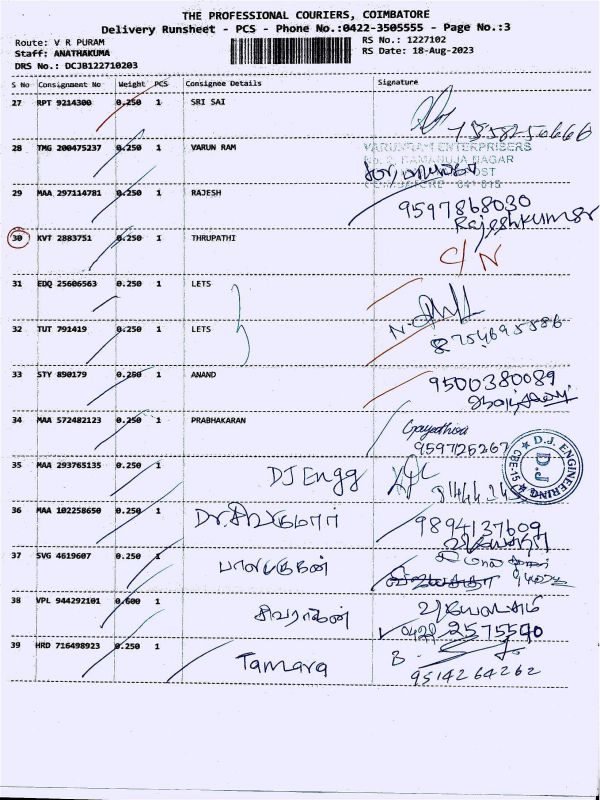 THE PROFESSIONAL COURIERS, COIMBATORE
Delivery Runsheet - PCS - Phone No.:0422-3505555 - Page No.:3
Route: V R PURAM
RS No.: 1227102
Staff: ANATHAKUMA
RS Date: 18-Aug-2023
DRS No.: DCJB122710203
S No Consignment No Weight PCS Consignee Details Signature
27 RPT 9214300 0.250 1 SRI SAI
28 TMG 200475237 0.250 1 VARUN RAM
VARUNRAM ENTERPRISERS
No. 2, RAMANUJA NAGAR
POST
COIMBATORE - 641 015
29 MAA 297114781 0.250 1 RAJESH
9597868030
Rajeshkumar
30 KVT 2883751 0.250 1 THRUPATHI
C/N
31 EDQ 25606563 0.250 1 LETS
32 TUT 791419 0.250 1 LETS
8754695586
33 STY 890179 0.250 1 ANAND
9500380089
34 MAA 572482123 0.250 1 PRABHAKARAN
Gayathiri
959725267
35 MAA 293765135 0.250 1 DJ Engg
D.J. ENGINEERING
D.J
CBE-15
36 MAA 102258650 0.250 1 Dr. சிவகுமார்
9894137609
37 SVG 4619607 0.250 1 பாலமுருகன்
38 VPL 944292101 0.600 1 சிவராஜன்
0422 2575590
39 HRD 716498923 0.250 1 Tamara
9514264262